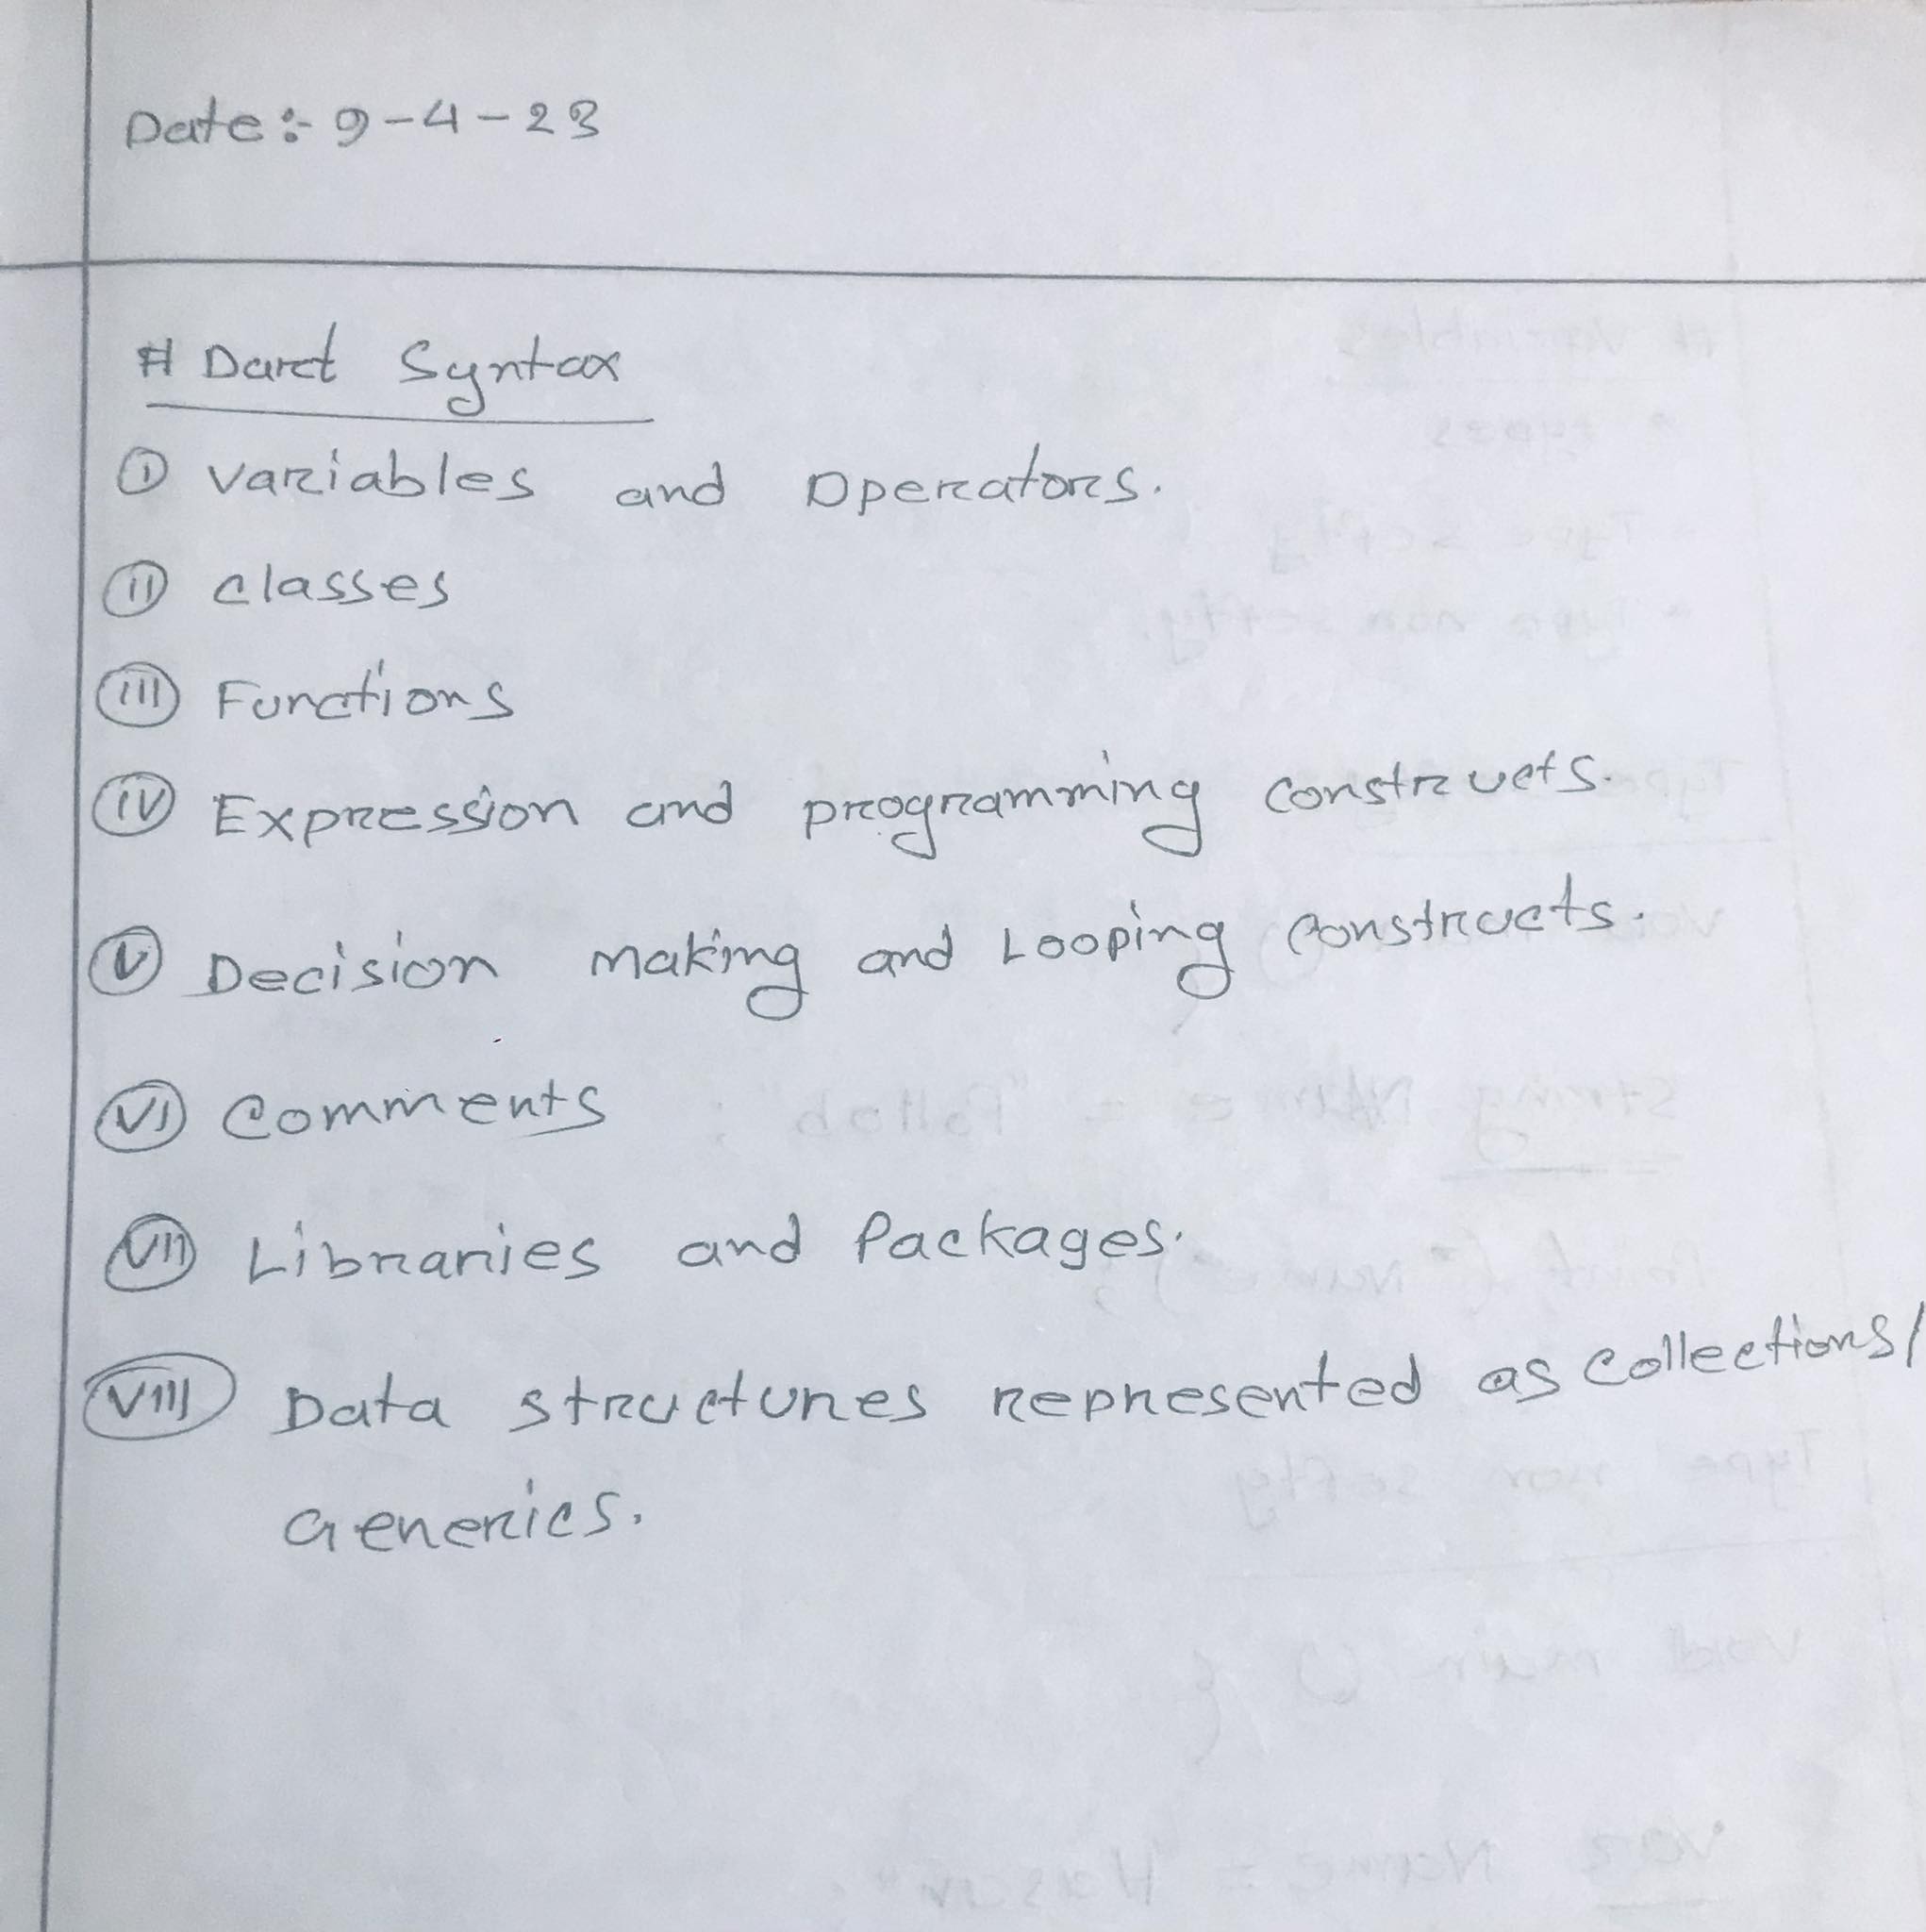 Date:- 9-4-23
# Dart Syntax
I Variables and Operators.
II Classes
III Functions
IV Expression and programming constructs.
V Decision making and Looping constructs.
VI Comments
VII Libraries and Packages.
VIII Data structures represented as collections/
Generics.